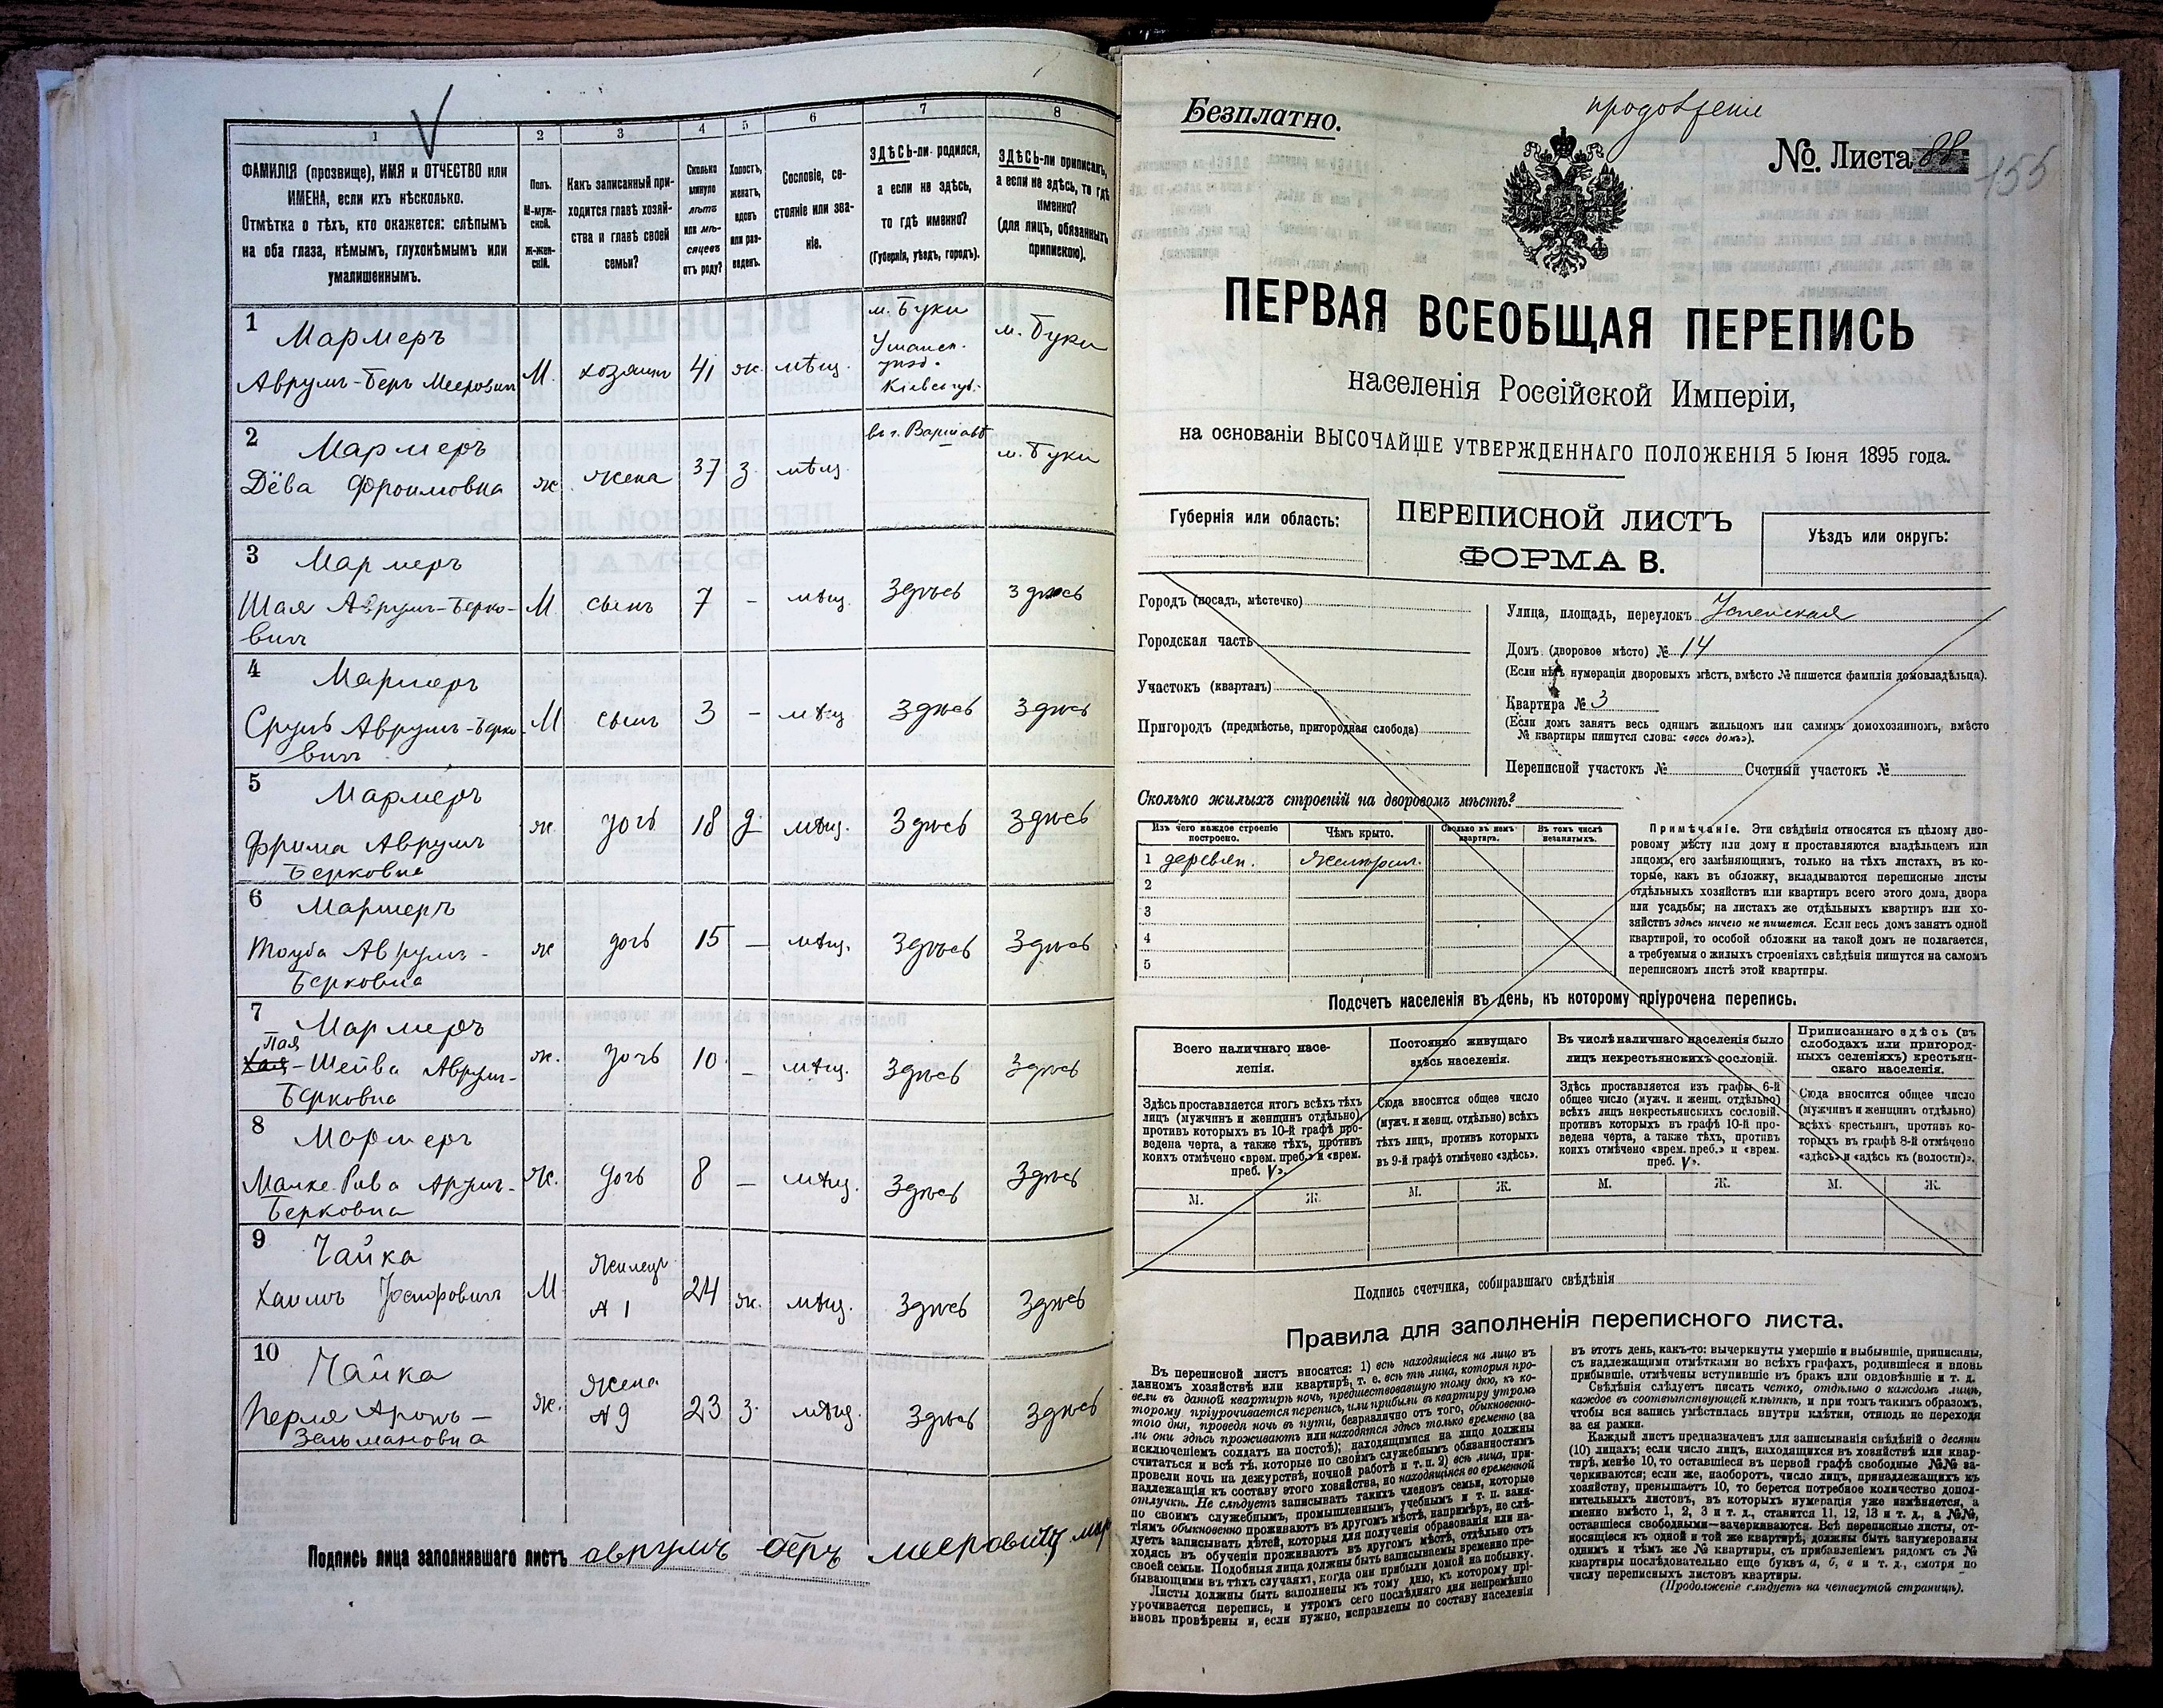 1
2
3
4
5
6
7
8
ФАМИЛІЯ (прозвище), ИМЯ и ОТЧЕСТВО или
ИМЕНА, если ихъ нѣсколько.
Отмѣтка о тѣхъ, кто окажется: слѣпымъ
на оба глаза, нѣмымъ, глухонѣмымъ или
умалишеннымъ.
Полъ.
М-муж-
ской.
Ж-жен-
скій.
Какъ записанный при-
ходится главѣ хозяй-
ства и главѣ своей
семьи?
Сколько
минуло
лѣтъ
или мѣ-
сяцевъ
отъ роду?
Холостъ,
женатъ,
вдовъ
или раз-
веденъ.
Сословіе, со-
стояніе или зва-
ніе.
ЗДѢСЬ-ли родился,
а если не здѣсь,
то гдѣ именно?
(Губернія, уѣздъ, городъ).
ЗДѢСЬ-ли приписанъ,
а если не здѣсь, то гдѣ
именно?
(для лицъ, обязанныхъ
припискою).
1 Мармеръ
Аврумъ-Беръ Мееровичъ М. хозяинъ 41 ж. мѣщ.
м. Буки
Уманск.
уѣзд.
Кіевс. губ.
м. Буки
2 Мармеръ
Дёва Фроимовна ж жена 37 з. мѣщ. въ г. Варшавѣ м. Буки
3 Мармеръ
Шая Аврумъ-Берко-
вичъ М. сынъ 7 - мѣщ. Здѣсь здѣсь
4 Мармеръ
Сруль Аврумъ-Берко-
вичъ М сынъ 3 - мѣщ Здѣсь Здѣсь
5 Мармеръ
Фрима Аврумъ
Берковна ж. дочь 18 д. мѣщ. Здѣсь Здѣсь
6 Мармеръ
Тоуба Аврумъ-
Берковна ж дочь 15 — мѣщ. Здѣсь Здѣсь
7 Мармеръ
Пая
Хая-Шейва Аврум-
Берковна ж. дочь 10 - мѣщ. Здѣсь Здѣсь
8 Мармеръ
Малке Рива Арумъ-
Берковна Ж. дочь 8 — мѣщ. Здѣсь Здѣсь
9 Чайка
Хаимъ Іосифовичъ М жилецъ
№ 1 24 ж. мѣщ. Здѣсь Здѣсь
10 Чайка
Перля Аронъ-
Зельмановна ж. жена
№ 9 23 з. мѣщ. Здѣсь Здѣсь
Подпись лица заполнявшаго листъ аврумъ беръ мееровичъ мар
Безплатно.
№ Листа 88
155
ПЕРВАЯ ВСЕОБЩАЯ ПЕРЕПИСЬ
населенія Россійской Имперіи,
на основаніи ВЫСОЧАЙШЕ УТВЕРЖДЕННАГО ПОЛОЖЕНІЯ 5 Іюня 1895 года.
Губернія или область:
ПЕРЕПИСНОЙ ЛИСТЪ
ФОРМА В.
Уѣздъ или округъ:
Городъ (посадъ, мѣстечко)
Городская часть
Участокъ (кварталъ)
Пригородъ (предмѣстье, пригородная слобода)
Улица, площадь, переулокъ Успенская
Домъ (дворовое мѣсто) № 14
(Если нѣтъ нумераціи дворовыхъ мѣстъ, вмѣсто № пишется фамилія домовладѣльца).
Квартира № 3
(Если домъ занятъ весь однимъ жильцомъ или самимъ домохозяиномъ, вмѣсто
№ квартиры пишутся слова: «весь домъ»).
Переписной участокъ № Счетный участокъ №
Сколько жилыхъ строеній на дворовомъ мѣстѣ?
Изъ чего каждое строеніе
построено.
Чѣмъ крыто.
Сколько въ немъ
квартиръ.
Въ томъ числѣ
незанятыхъ.
1 деревян.
2
3
4
5
Примѣчаніе. Эти свѣдѣнія относятся къ цѣлому дво-
ровому мѣсту или дому и проставляются владѣльцемъ или
лицомъ, его замѣняющимъ, только на тѣхъ листахъ, въ ко-
торые, какъ въ обложку, вкладываются переписные листы
отдѣльныхъ хозяйствъ или квартиръ всего этого дома, двора
или усадьбы; на листахъ же отдѣльныхъ квартиръ или хо-
зяйствъ здѣсь ничего не пишется. Если весь домъ занятъ одной
квартирой, то особой обложки на такой домъ не полагается,
а требуемыя о жилыхъ строеніяхъ свѣдѣнія пишутся на самомъ
переписномъ листѣ этой квартиры.
Подсчетъ населенія въ день, къ которому пріурочена перепись.
Всего наличнаго насе-
ленія.
Здѣсь проставляется итогъ всѣхъ тѣхъ
лицъ (мужчинъ и женщинъ отдѣльно),
противъ которыхъ въ 10-й графѣ про-
ведена черта, а также тѣхъ, противъ
коихъ отмѣчено «врем. преб.» и «врем.
преб. V».
Постоянно живущаго
здѣсь населенія.
Сюда вносится общее число
(мужч. и женщ. отдѣльно) всѣхъ
тѣхъ лицъ, противъ которыхъ
въ 9-й графѣ отмѣчено «здѣсь».
Въ числѣ наличнаго населенія было
лицъ некрестьянскихъ сословій.
Здѣсь проставляется изъ графы 6-й
общее число (мужч. и женщ. отдѣльно)
всѣхъ лицъ некрестьянскихъ сословій,
противъ которыхъ въ графѣ 10-й про-
ведена черта, а также тѣхъ, противъ
коихъ отмѣчено «врем. преб.» и «врем.
преб. V».
Приписаннаго здѣсь (въ
слободахъ или пригород-
ныхъ селеніяхъ) крестьян-
скаго населенія.
Сюда вносится общее число
(мужчинъ и женщинъ отдѣльно)
всѣхъ крестьянъ, противъ ко-
торыхъ въ графѣ 8-й отмѣчено
«здѣсь» и «здѣсь къ (волости)».
М. Ж. М. Ж. М. Ж. М. Ж.
Подпись счетчика, собиравшаго свѣдѣнія
Правила для заполненія переписного листа.
Въ переписной листъ вносятся: 1) всѣ находящіеся на лицо въ
данномъ хозяйствѣ или квартирѣ, т. е. всѣ тѣ лица, которыя про-
вели въ данной квартирѣ ночь, предшествовавшую тому дню, къ ко-
торому пріурочивается перепись, или прибыли въ квартиру утромъ
того дня, проведя ночь въ пути, безразлично отъ того, обыкновенно-
ли они здѣсь проживаютъ или находятся здѣсь только временно (за
исключеніемъ солдатъ на постоѣ); находящимися на лицо должны
считаться и всѣ тѣ, которые по своимъ служебнымъ обязанностямъ
провели ночь на дежурствѣ, ночной работѣ и т. п. 2) всѣ лица, при-
надлежащія къ составу этого хозяйства, но находящіяся во временной
отлучкѣ. Не слѣдуетъ записывать такихъ членовъ семьи, которые
по своимъ служебнымъ, промышленнымъ, учебнымъ и т. п. заня-
тіямъ обыкновенно проживаютъ въ другомъ мѣстѣ, напримѣръ, не слѣ-
дуетъ записывать дѣтей, которыя для полученія образованія или на-
ходясь въ обученіи проживаютъ въ другомъ мѣстѣ, отдѣльно отъ
своей семьи. Подобныя лица должны быть записываемы временно пре-
бывающими въ тѣхъ случаяхъ, когда они прибыли домой на побывку.
Листы должны быть заполнены къ тому дню, къ которому прі-
урочивается перепись, и утромъ сего послѣдняго дня непремѣнно
вновь провѣрены и, если нужно, исправлены по составу населенія
въ этотъ день, какъ-то: вычеркнуты умершіе и выбывшіе, приписаны,
съ надлежащими отмѣтками во всѣхъ графахъ, родившіеся и вновь
прибывшіе, отмѣчены вступившіе въ бракъ или овдовѣвшіе и т. д.
Свѣдѣнія слѣдуетъ писать четко, отдѣльно о каждомъ лицѣ,
каждое въ соотвѣтствующей клѣткѣ, и при томъ такимъ образомъ,
чтобы вся запись умѣстилась внутри клѣтки, отнюдь не переходя
за ея рамки.
Каждый листъ предназначенъ для записыванія свѣдѣній о десяти
(10) лицахъ; если число лицъ, находящихся въ хозяйствѣ или квар-
тирѣ, менѣе 10, то оставшіеся въ первой графѣ свободные №№ за-
черкиваются; если же, наоборотъ, число лицъ, принадлежащихъ къ
хозяйству, превышаетъ 10, то берется потребное количество допол-
нительныхъ листовъ, въ которыхъ нумерація уже измѣняется, а
именно вмѣсто 1, 2, 3 и т. д., ставится 11, 12, 13 и т. д., а №№,
оставшіеся свободными—зачеркиваются. Всѣ переписные листы, от-
носящіеся къ одной и той же квартирѣ, должны быть занумерованы
однимъ и тѣмъ же № квартиры, съ прибавленіемъ рядомъ съ №
квартиры послѣдовательно еще буквъ а, б, в и т. д., смотря по
числу переписныхъ листовъ квартиры.
(Продолженіе слѣдуетъ на четвертой страницѣ).